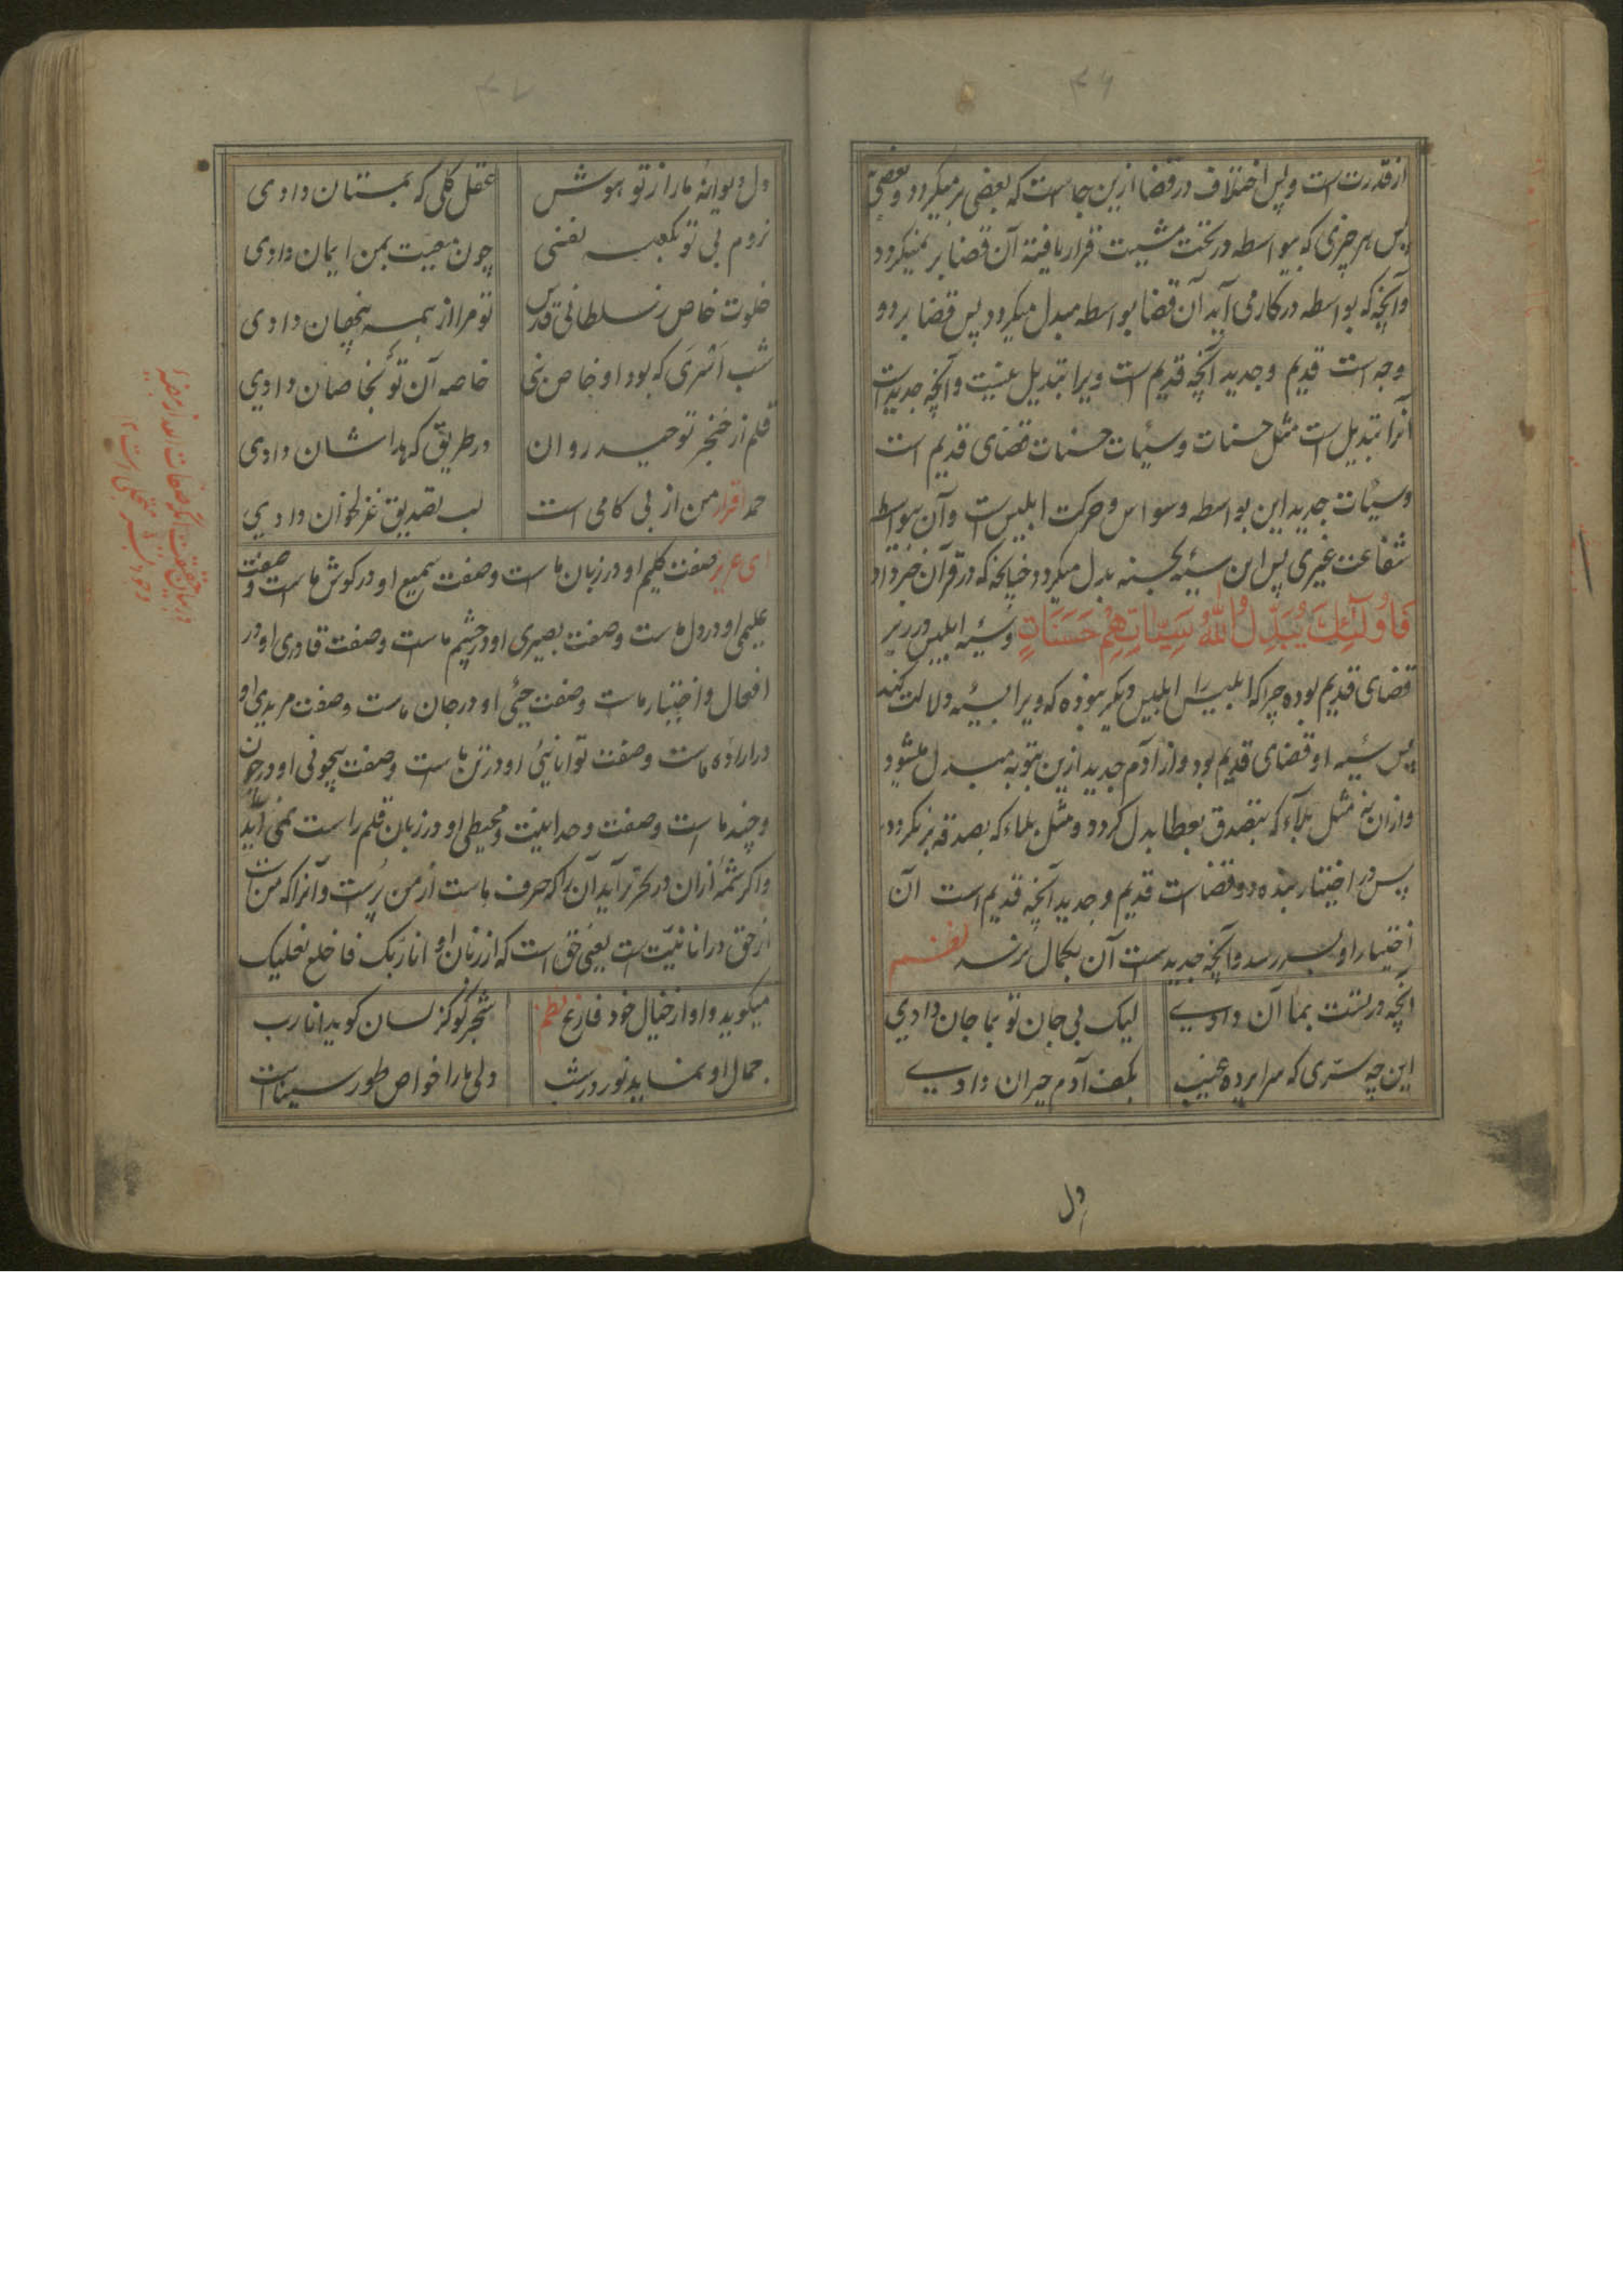 ۴۶
از قدرت است و این اختلاف در قضا ازین جاست که بعضی بر میکردد و بعضی نه
پس هر چیزی که بیواسطه در تحت مشیت قرار یافته آن قضا بر نمیکردد
وآنچه که بواسطه در کار می آید آن قضا بواسطه مبدل میکردد پس قضا بر دو
وجه است قدیم وجدید آنچه قدیم است ویرا تبدیل نیست وآنچه جدیدست
آنرا تبدیل است مثل حسنات وسیئات حسنات قضای قدیم است
وسیئات جدید این بواسطه وسواس وحرکت ابلیس است وآن بیواسطه
شفاعت غیری پس این سیئه بحسنه بدل میکردد چنانچه که در قرآن خبر داد
فَاُولَٓئِكَ يُبَدِّلُ اللّٰهُ سَيِّئَاتِهِمْ حَسَنَاتٍ وسیئه ابلیس در زیر
قضای قدیم بوده چرا که ابلیس را ابلیس دیگر نبوده که ویرا بسیئه دلالت کند
پس سیئه او قضای قدیم بود واز آدم جدید ازین بتوبه مبدل میشود
وازان نیز مثل بلاء که بتصدق بعطا بدل کردد ومثل بلاء که بصدقه بر نکردد
پس در اختیار بنده دو قضاست قدیم وجدید آنچه قدیم است آن
اختیار او بسر رسد وآنچه جدید ست آن بکمال نرسد نظم
آنچه در تست بما آن دادی لیک بی جان تو بما جان دادی
این چه ستری که سراپرده غیب بکف آدم حیران دادی
دل
۴۷
دل دیوانهٔ ما را ز تو هوش عقل کلی که بمستان دادی
نروم بی تو بکعبه یعنی چون معیت بمن ایمان دادی
خلوت خاص ز سلطانی قدس تو مرا از همه پنهان دادی
شب اَسْرَی که بود او خاص نبی خاصه آن تو بخاصان دادی
قلم از خنجر توحید روان در طریقی که بداشان دادی
حمد اقرار من از بی کامی است لب بتصدیق غزلخوان دادی
ای عزیز صفت کلیم او در زبان ماست وصفت سمیع او در کوش ماست وصفت
علیمی او در دل ماست وصفت بصیری او در چشم ماست وصفت قادری او در
افعال واختیار ماست وصفت حیّی او در جان ماست وصفت مریدی او
در ارادهٔ ماست وصفت توانائیی او در تن ماست وصفت بیچونی او در چون
وچند ماست وصفت وحدانیت ومحیطی او در زبان قلم راست نمی آید
واکر شمهٔ ازان در تحریر آید آن را که حرف ماست از من پرست وآنرا که من است
از حق در انانیّت است یعنی حق است که از زبان او انا ربک فاخلع نعلیک
میکوید واو از خیال خود فارغ نظم شجر کو کز لسان کوید انا رب
جمال او نماید نور در شب ولی ما را خواص طور سیناست